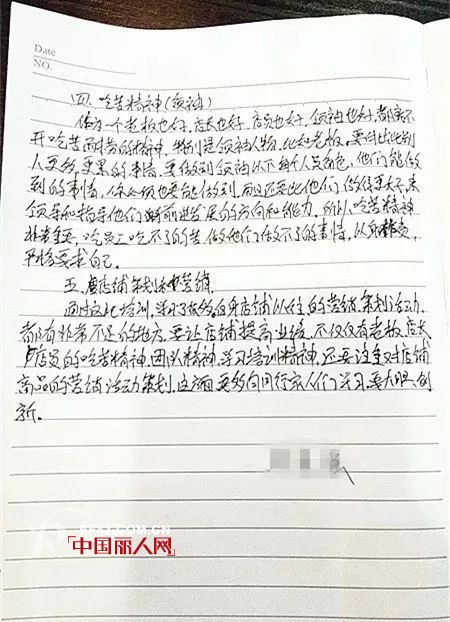 Date
NO.
四. 吃苦精神(领袖)
做为一个老板也好, 店长也好, 店员也好, 领袖也好, 都离不
开吃苦耐劳的精神, 特别是领袖人物, 比如老板, 要付出比别
人更多, 更累的事情, 要做到领袖以下每个人员角色, 他们能做
到的事情, 你必须也要能做到, 而且还要比他们做得更好, 来
领导和指导他们朝前进发展的方向和能力. 所以, 吃苦精神
非常重要, 吃员工吃不了的苦, 做他们做不了的事情, 从而
严格要求自己.
五. 店铺策划和营销.
通过这次培训, 学习了很多自身店铺从往的营销, 策划活动,
都有非常不足的地方, 要让店铺提高业绩, 不仅仅有老板, 店长
店员的吃苦精神, 团队精神, 学习培训精神, 还要注重对店铺
商品的营销活动策划, 这方面要多向同行家人们学习, 要大胆创
新.
中国丽人网